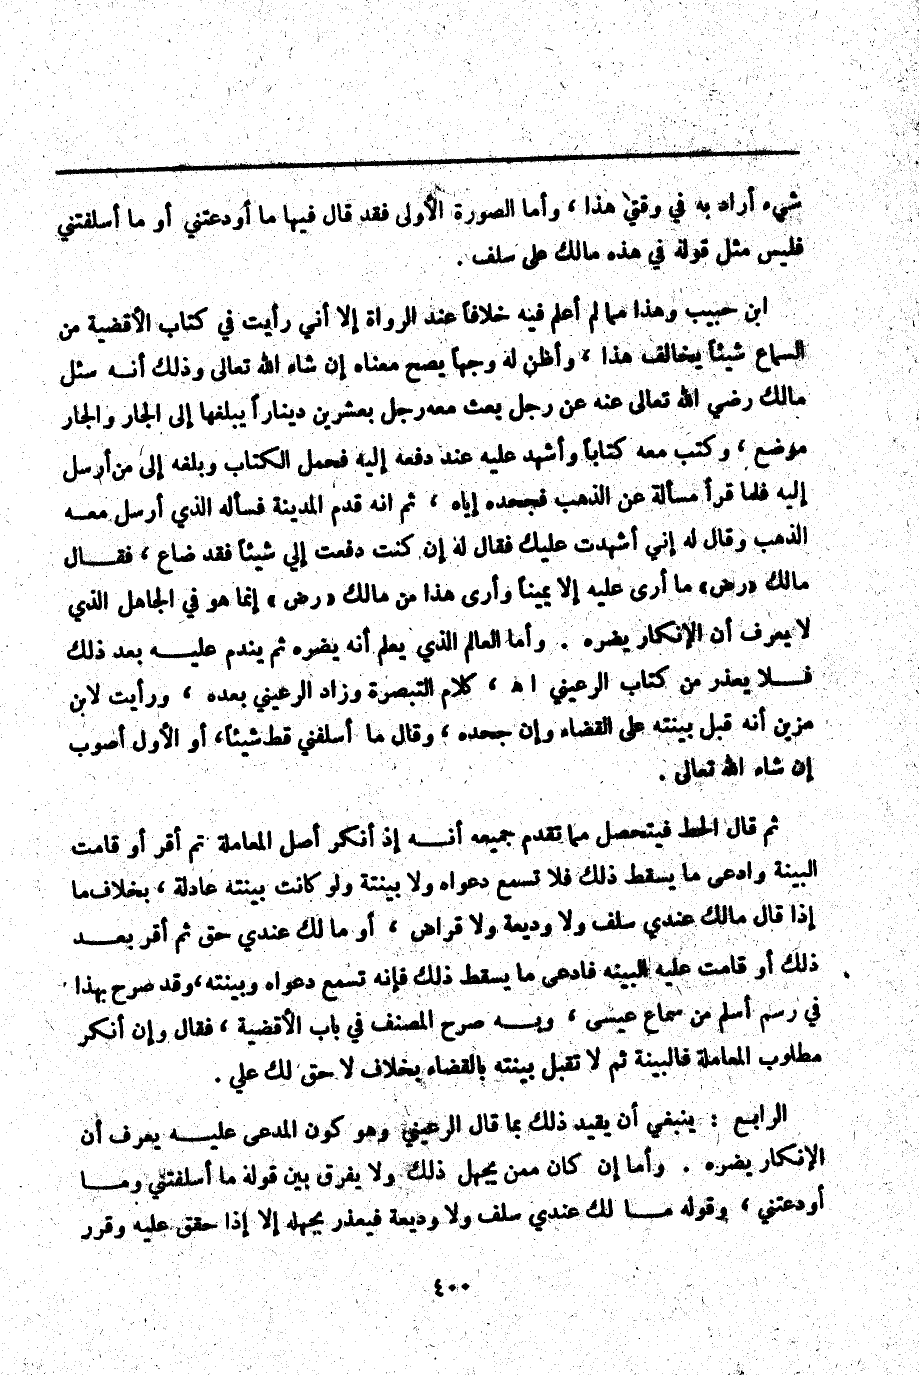 شيء أراد به في وقتي هذا ، وأما الصورة الأولى فقد قال فيها ما أودعتني أو ما أسلفتني
فليس مثل قوله في هذه مالك على سلف .
ابن حبيب وهذا مما لم أعلم فيه خلافاً عند الرواة إلا أني رأيت في كتاب الأقضية من
السماع شيئاً يخالف هذا ، وأظن له وجهاً يصح معناه إن شاء الله تعالى وذلك أنـه سئل
مالك رضي الله تعالى عنه عن رجل بعث معه رجل بعشرين ديناراً يبلغها إلى الجار والجار
موضع ، وكتب معه كتاباً وأشهد عليه عند دفعه إليه فحمل الكتاب وبلغه إلى من أرسل
إليه فلما قرأ مسألة عن الذهب فجحده إياه ، ثم انه قدم المدينة فسأله الذي أرسل معـه
الذهب وقال له إني أشهدت عليك فقال له إن كنت دفعت إلي شيئاً فقد ضاع ، فقـال
مالك «رض» ما أرى عليه إلا يميناً وأرى هذا من مالك « رض » إنما هو في الجاهل الذي
لا يعرف أن الإنكار يضره . وأما العالم الذي يعلم أنه يضره ثم يندم عليـه بعد ذلك
فـلا يعذر من كتاب الرعيني ا ه ، كلام التبصرة وزاد الرعيني بعده ، ورأيت لابن
مزين أنه قبل بينته على القضاء وإن جحده ، وقال ما أسلفني قط شيئاً، أو الأول أصوب
إن شاء الله تعالى .
ثم قال الحط فيتحصل مما تقدم جميعه أنـه إذ أنكر أصل المعاملة تم أقر أو قامت
البينة وادعى ما يسقط ذلك فلا تسمع دعواه ولا بينتة ولو كانت بينته عادلة ، بخلاف ما
إذا قال مالك عندي سلف ولا وديعة ولا قراض ، أو ما لك عندي حق ثم أقر بعـد
ذلك أو قامت عليه البينه فادعى ما يسقط ذلك فإنه تسمع دعواه وبينته،وقد صرح بهذا
في رسم أسلم من سماع عيسى ، وبـه صرح المصنف في باب الأقضية ، فقال وإن أنكر
مطلوب المعاملة فالبينة ثم لا تقبل بينته بالقضاء بخلاف لا حق لك علي .
الرابع : ينبغي أن يقيد ذلك بما قال الرعيني وهو كون المدعى عليـه يعرف أن
الإنكار يضره . وأما إن كان ممن يجهل ذلك ولا يفرق بين قوله ما أسلفتني ومـا
أودعتني ، وقوله مـا لك عندي سلف ولا وديعة فيعذر يجهله إلا إذا حقق عليه وقرر
٤٠٠